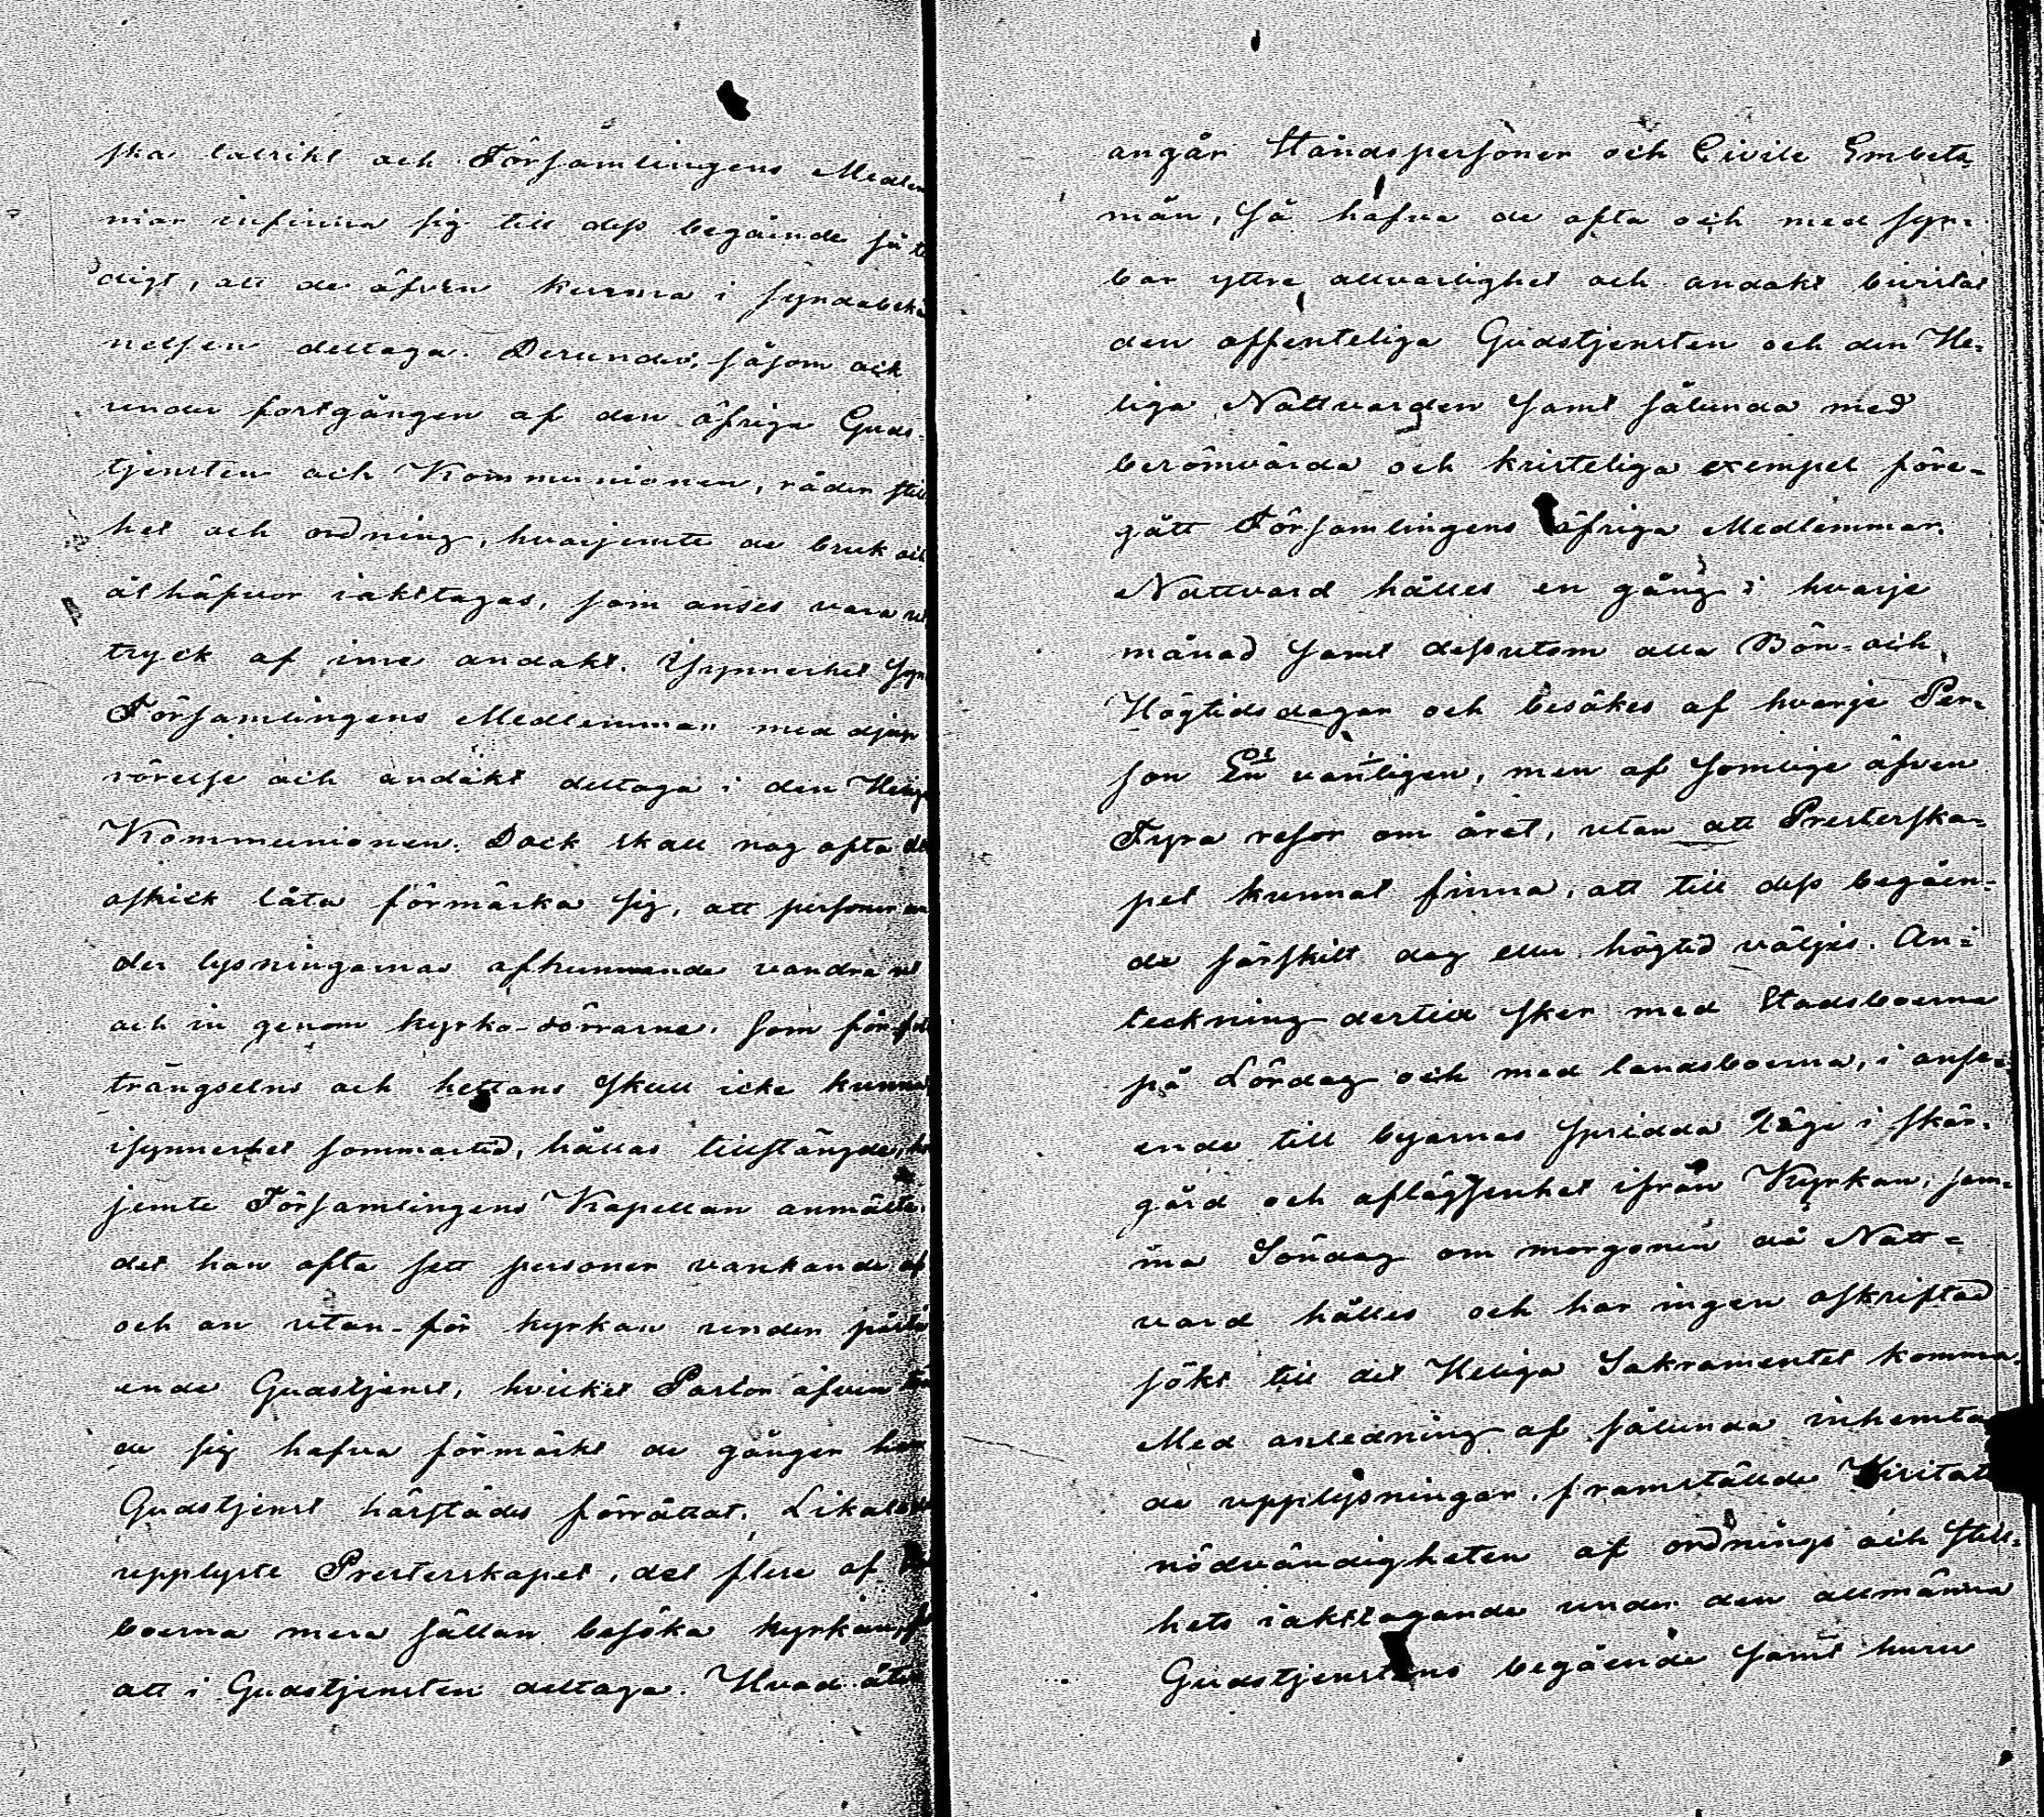 ska talrikt och Församlingens Medlem
mar infinna sig till dess begående så ti
digt, att de äfven kunna i syndabekä
nelsen deltaga. Derunder, såsom ock
under fortgången af den öfriga Guds-
tjensten och Kommunionen, råder still
het och ordning, hvarjemte de bruk och
åthäfvor iakttagas, som anses vara ut
tryck af inre andakt. Isynnerhet syn
Församlingens Medlemmar med djup
rörelse och andakt deltaga i den Heliga
Kommunionen. Dock skall nog ofta det
oskick låta förmärka sig, att personer un
der lysningarnas afkunnande vandra ut
och in genom kyrko-dörrarne, som för
trängselns och hettans skull icke kunna,
isynnerhet sommartid, hållas tillstängde, hv
jemte Församlingens Kapellan anmälte,
det han ofta sett personer vankande af
och an utan-för kyrkan under påstå
ende Gudstjenst, hvilket Pastor äfven
de sig hafva förmärkt de gånger han
Gudstjenst härstädes förrättat. Likaledes
upplyste Presterskapet, det flere af
boerna mera sällan besöka kyrkan, f
att i Gudstjensten deltaga. Hvad åter
angår Ståndspersoner och Civile Embets-
män, så hafva de ofta och med syn-
bar yttre allvarlighet och andakt bivistat
den offenteliga Gudstjensten och den He-
liga Nattvarden samt sålunda med
berömvärda och kristeliga exempel före-
gått Församlingens öfriga Medlemmar.
Nattvard hålles en gång i hvarje
månad samt dessutom alla Bön- och
Högtidsdagar och besökes af hvarje Per-
son En vanligen, men af somlige äfven
Fyra resor om året, utan att Presterska-
pet kunnat finna, att till dess begåen-
de särskilt dag eller högtid väljes. An-
teckning dertill sker med Stadsboerna
på Lördag och med landsboerna, i anse-
ende till byarnas spridda läge i skär-
gård och aflägsenhet ifrån Kyrkan, sam-
ma Söndag om morgonen då Natt-
vard hålles och har ingen oskriftad
sökt till det Heliga Sakramentet komma.
Med anledning af sålunda inhemta
de upplysningar, framställde Visitat
nödvändigheten af ordnings och still-
hets iakttagande under den allmänna
Gudstjenstens begående samt huru